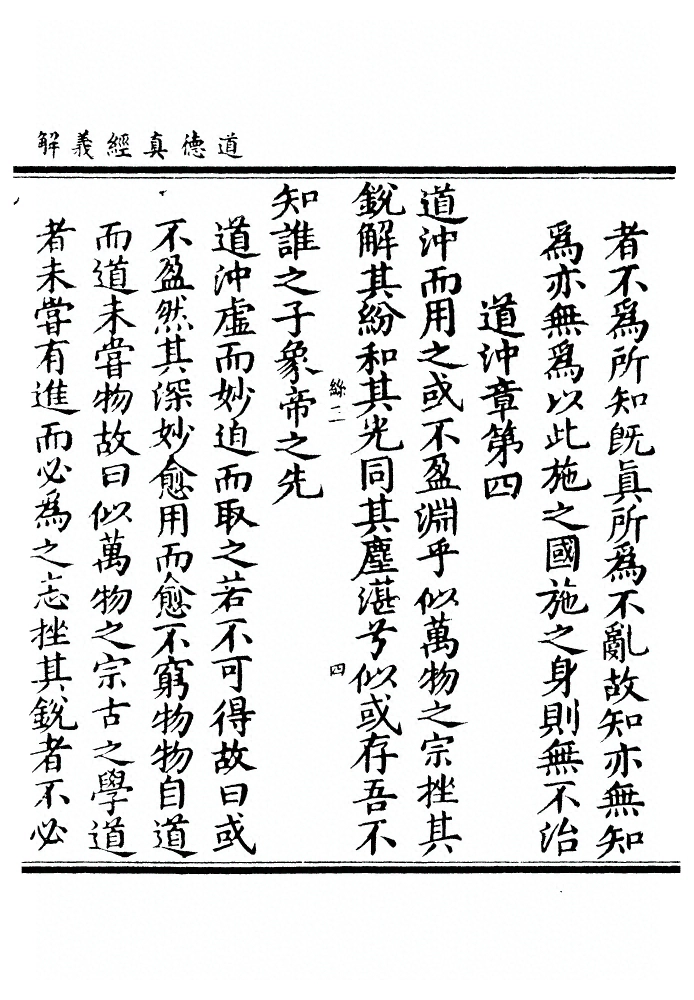 道德真經義解
者不爲所知旣眞所爲不亂故知亦無知
爲亦無爲以此施之國施之身則無不治
道沖章第四
道沖而用之或不盈淵乎似萬物之宗挫其
銳解其紛和其光同其塵湛兮似或存吾不
絲二
四
知誰之子象帝之先
道沖虛而妙迫而取之若不可得故曰或
不盈然其深妙愈用而愈不窮物物自道
而道未嘗物故曰似萬物之宗古之學道
者未嘗有進而必爲之志挫其銳者不必